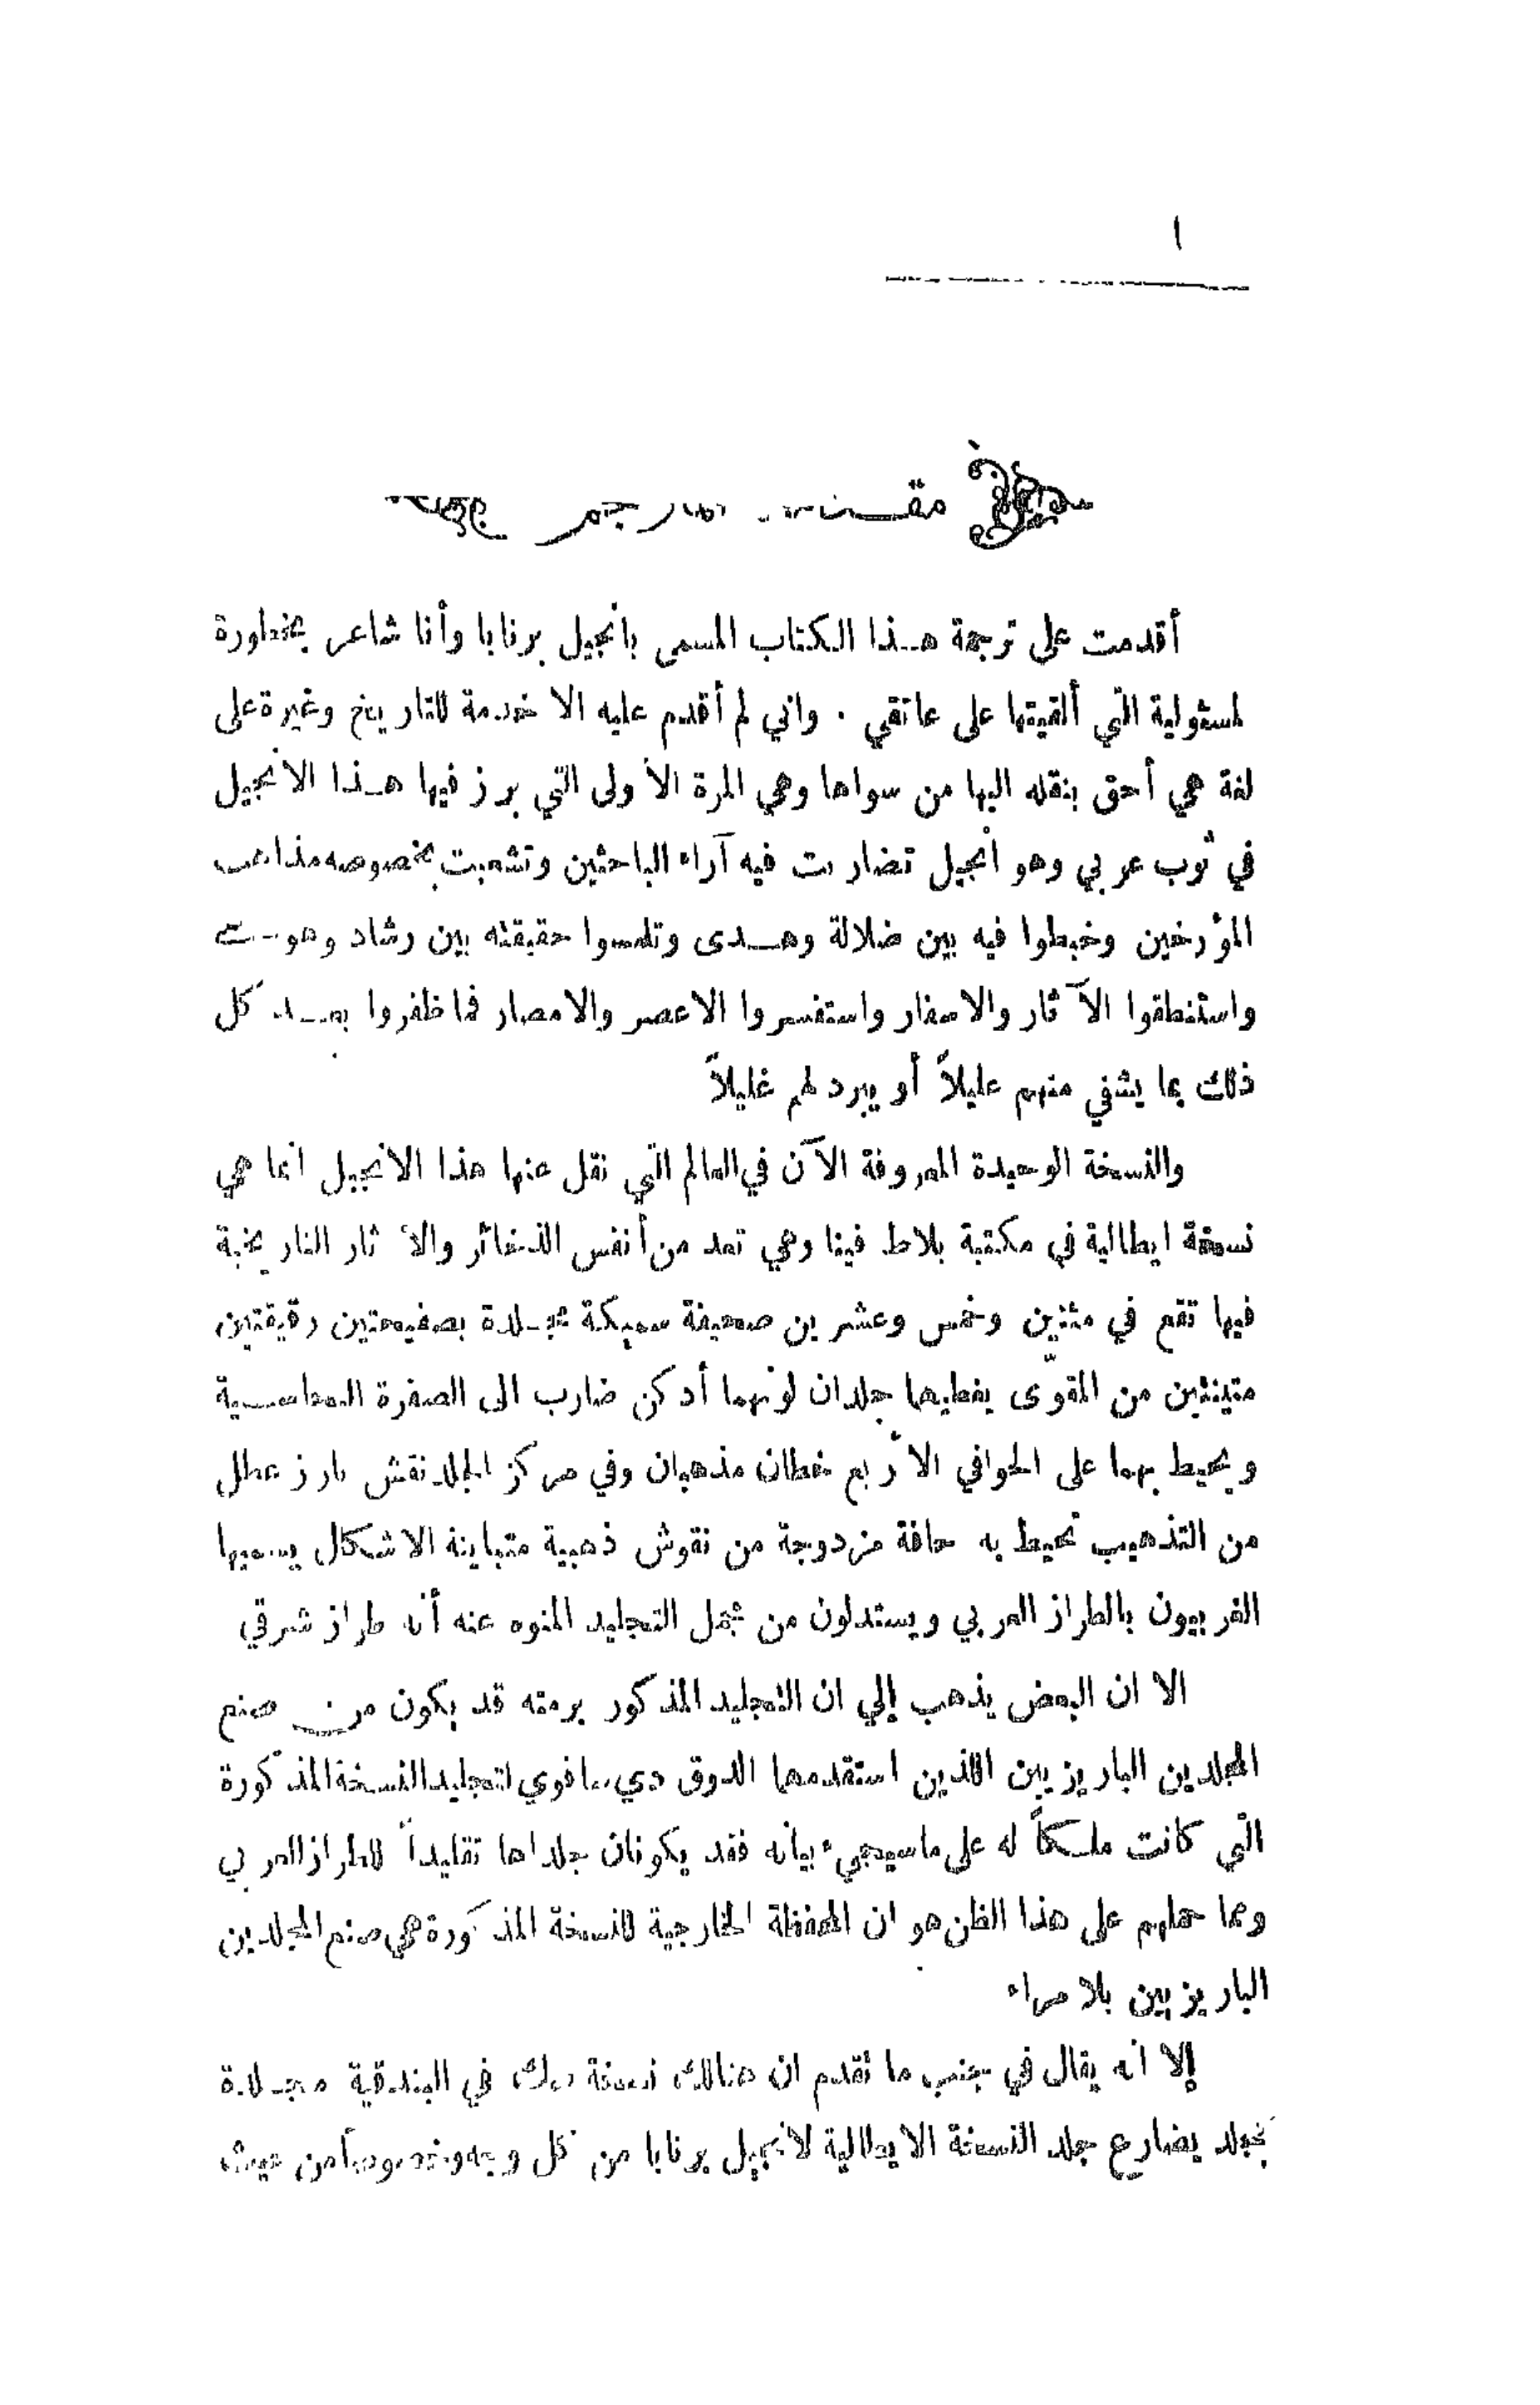 ١
مقدمة المترجم
أقدمت على ترجمة هذا الكتاب المسمى بانجيل برنابا وأنا شاعر بخطورة
لمسئولية التي ألقيتها على عاتقي . واني لم أقدم عليه الا خدمة للتاريخ وغيرة على
لغة هي أحق بنقله اليها من سواها وهي المرة الأولى التي برز فيها هذا الانجيل
في ثوب عربي وهو انجيل تضاربت فيه آراء الباحثين وتشعبت بخصوصه مذاهب
المؤرخين وخبطوا فيه بين ضلالة وهدى وتلمسوا حقيقته بين رشاد وهوى
واستنطقوا الآثار والاسفار واستفسروا الاعصر والامصار فما ظفروا بعد كل
ذلك بما يشفي منهم عليلاً أو يبرد لهم غليلاً
والنسخة الوحيدة المعروفة الآن في العالم التي نقل عنها هذا الانجيل انما هي
نسخة ايطالية في مكتبة بلاط فينا وهي تعد من أنفس الذخائر والآثار التاريخية
فيها تقع في مئتين وخمس وعشرين صحيفة سميكة مجلدة بصفيحتين رقيقتين
متينتين من المقوّى يغطيهما جلدان لونهما أدكن ضارب الى الصفرة النحاسية
ويحيط بهما على الحوافي الأربع خطان مذهبان وفي مركز الجلد نقش بارز عطل
من التذهيب تحيط به حافة مزدوجة من نقوش ذهبية متباينة الاشكال يسميها
الغربيون بالطراز العربي ويستدلون من مجمل التجليد المنوه عنه أنه طراز شرقي
الا ان البعض يذهب إلي ان التجليد المذكور برمته قد يكون من صنع
المجلدين الباريزيين اللذين استقدمهما الدوق دي سافوي لتجليد النسخة المذكورة
التي كانت ملكاً له على ماسيجيء بيانه فقد يكونان جلداها تقليداً للطراز العربي
ومما حملهم على هذا الظن هو ان المحفظة الخارجية للنسخة المذكورة هي صنع المجلدين
الباريزيين بلا مراء
إلا انه يقال في جنب ما تقدم ان هنالك نسخة صك في البندقية مجلدة
بجلد يضارع جلد النسخة الايطالية لانجيل برنابا من كل وجه وخصوصاً من حيث